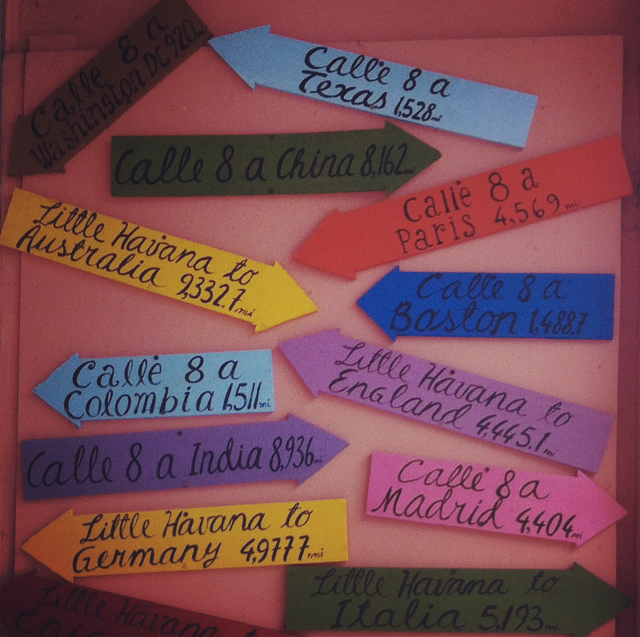 Calle 8 a
Washington DC 920mi
Calle 8 a
Texas 1,528mi
Calle 8 a China 8,162
Calle 8 a
Paris 4,569mi
Little Havana to
Australia 9,332.7mi
Calle 8 a
Boston 1,488.7
Calle 8 a
Colombia 1,511mi
Little Havana to
England 4,445.1mi
Calle 8 a India 8,936mi
Calle 8 a
Madrid 4,404mi
Little Havana to
Germany 4,977.7mi
Little Havana to
Italia 5,193mi
Little Havana to